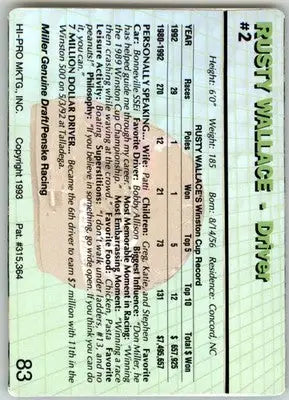 RUSTY WALLACE - Driver
#2
Height: 6'0" Weight: 185 Born: 8/14/56 Residence: Concord, NC
RUSTY WALLACE'S Winston Cup Record
YEAR Races Poles Won Top 5 Top 10 Total $ Won
1992 29 1 1 5 12 $ 657,925
1980-1992 270 12 21 73 131 $7,495,657
PERSONALLY SPEAKING... Wife: Patti Children: Greg, Katie, and Stephen Favorite
Car: Bonneville SSE Favorite Driver: Bobby Allison Biggest Influence: "Don Miller, he
has helped guide me through my career." Most Memorable Moment in Racing: "Winning
the 1989 Winston Cup Championship." Most Embarrassing Moment: "Winning a race
then crashing while waving at the crowd." Favorite Food: Chicken, Pasta Favorite
Leisure Activity: Boating Superstitions: "I don't walk under ladders, #13, and no
peanuts!" Philosophy: "If you believe in something, go wide open. If you think you can do
it, you can."
MILLION DOLLAR DRIVER. Became the 6th driver to earn $7 million with 11th in the
Winston 500 on 5/3/92 at Talladega.
Miller Genuine Draft/Penske Racing
HI-PRO MKTG., INC. Copyright 1993 Pat. #315,364 83